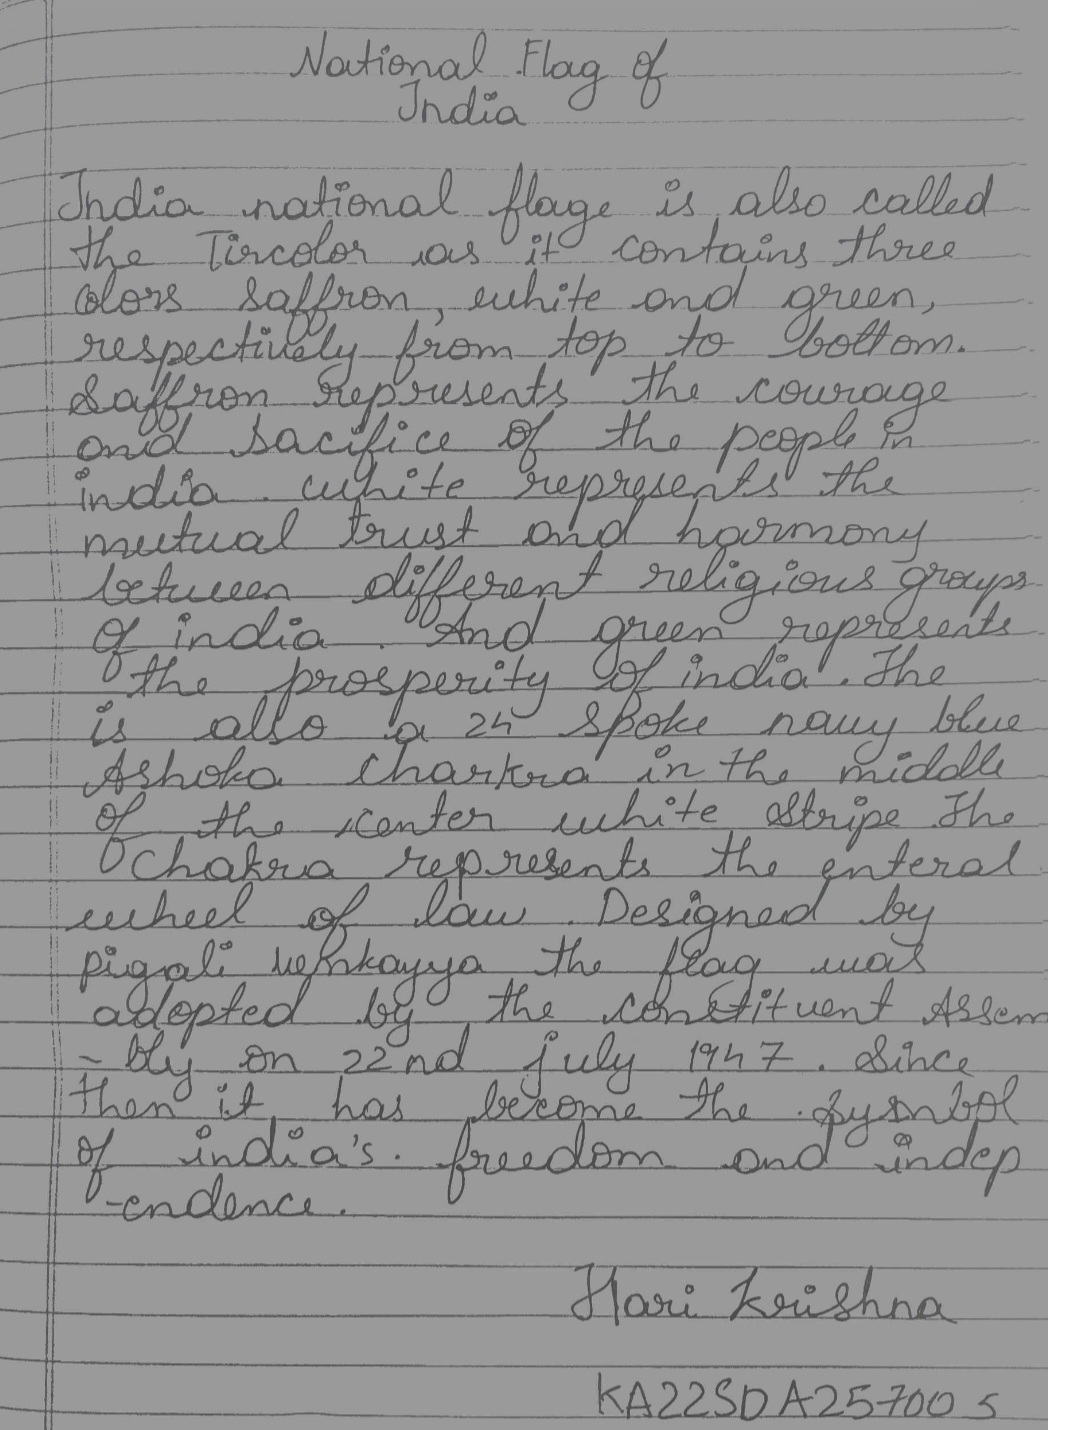 National Flag of
India
India national flage is also called
the Tircolor as it contains three
colors saffron, white and green,
respectively from top to bottom.
Saffron represents the courage
and sacifice of the people in
india. white represents the
mutual trust and harmony
between different religious groups
of india. And green represents
the prosperity of india. The
is also a 24 spoke navy blue
Ashoka Charkra in the middle
of the center white stripe The
Chakra represents the enteral
wheel of law. Designed by
pigali venkayya the flag was
adopted by the constituent Assem
- bly on 22nd july 1947. Since
then it has become the symbol
of india's. freedom and indep
-endence.
Hari Krishna
KA22SDA257005